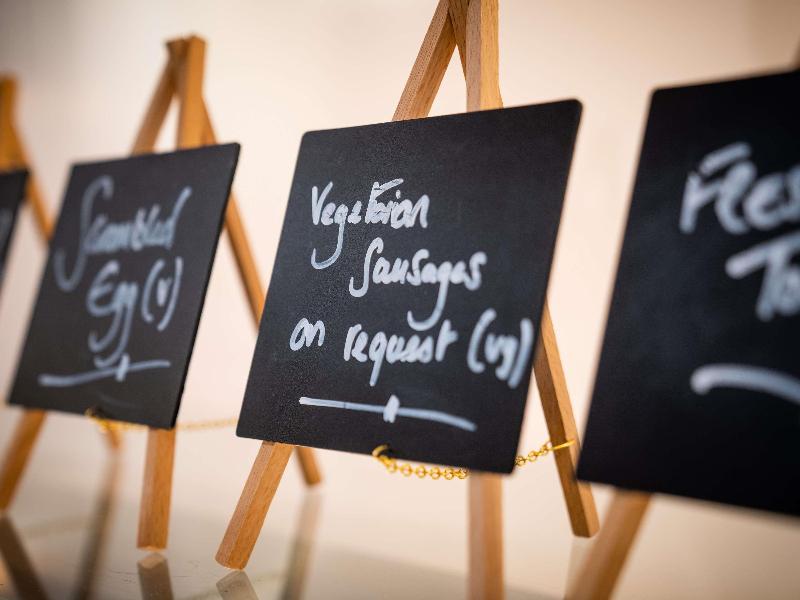 Scrambled
Egg (v)
Vegetarian
Sausages
on request (vg)